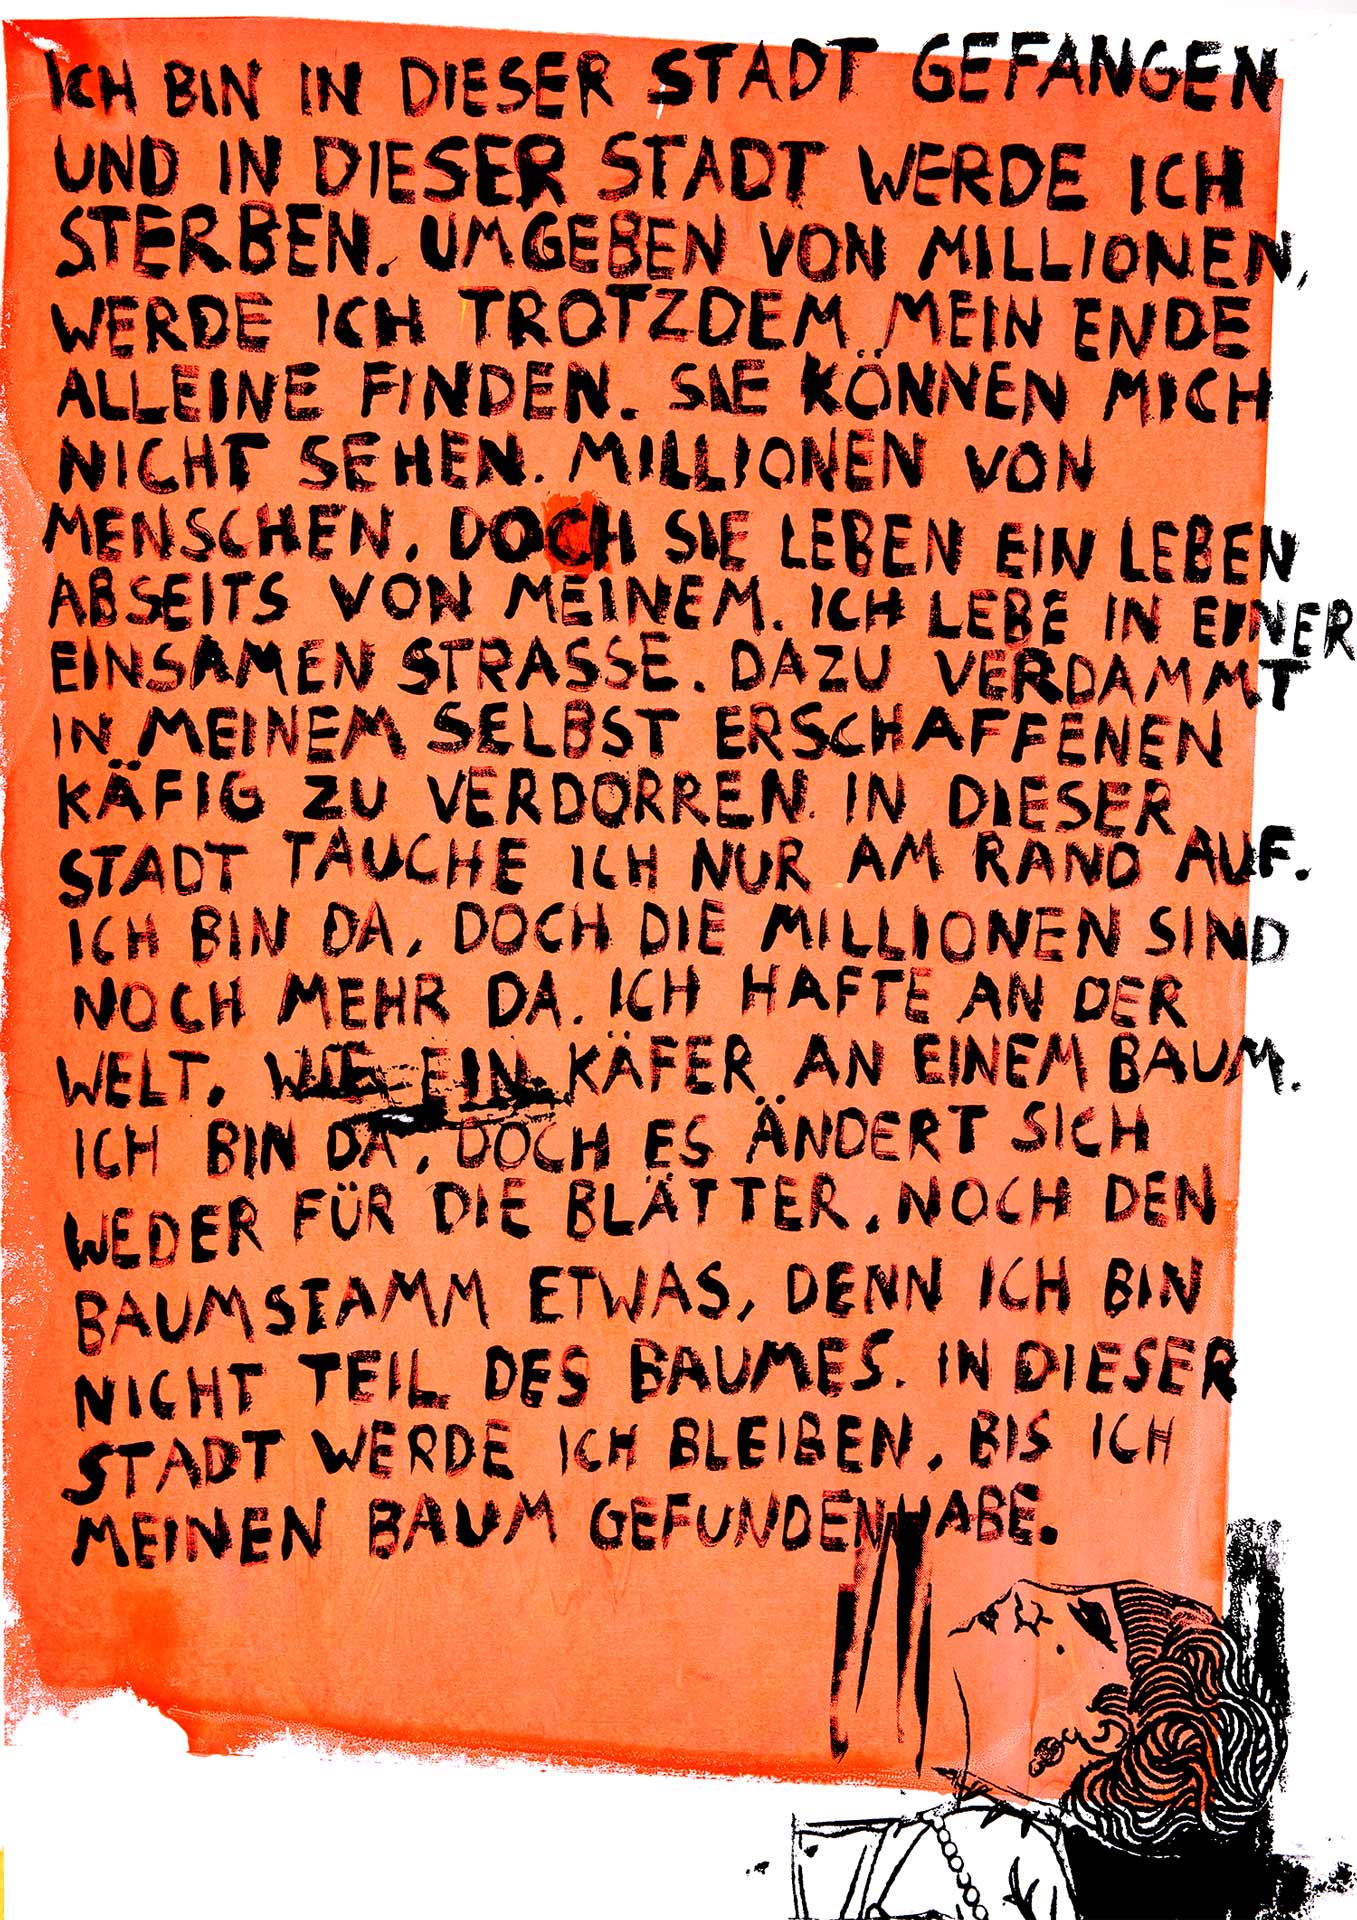 ICH BIN IN DIESER STADT GEFANGEN
UND IN DIESER STADT WERDE ICH
STERBEN. UMGEBEN VON MILLIONEN,
WERDE ICH TROTZDEM MEIN ENDE
ALLEINE FINDEN. SIE KÖNNEN MICH
NICHT SEHEN. MILLIONEN VON
MENSCHEN, DOCH SIE LEBEN EIN LEBEN
ABSEITS VON MEINEM. ICH LEBE IN EINER
EINSAMEN STRASSE. DAZU VERDAMMT
IN MEINEM SELBST ERSCHAFFENEN
KÄFIG ZU VERDORREN. IN DIESER
STADT TAUCHE ICH NUR AM RAND AUF.
ICH BIN DA, DOCH DIE MILLIONEN SIND
NOCH MEHR DA. ICH HAFTE AN DER
WELT, WIE EIN KÄFER AN EINEM BAUM.
ICH BIN DA, DOCH ES ÄNDERT SICH
WEDER FÜR DIE BLÄTTER, NOCH DEN
BAUMSTAMM ETWAS, DENN ICH BIN
NICHT TEIL DES BAUMES. IN DIESER
STADT WERDE ICH BLEIBEN, BIS ICH
MEINEN BAUM GEFUNDEN HABE.